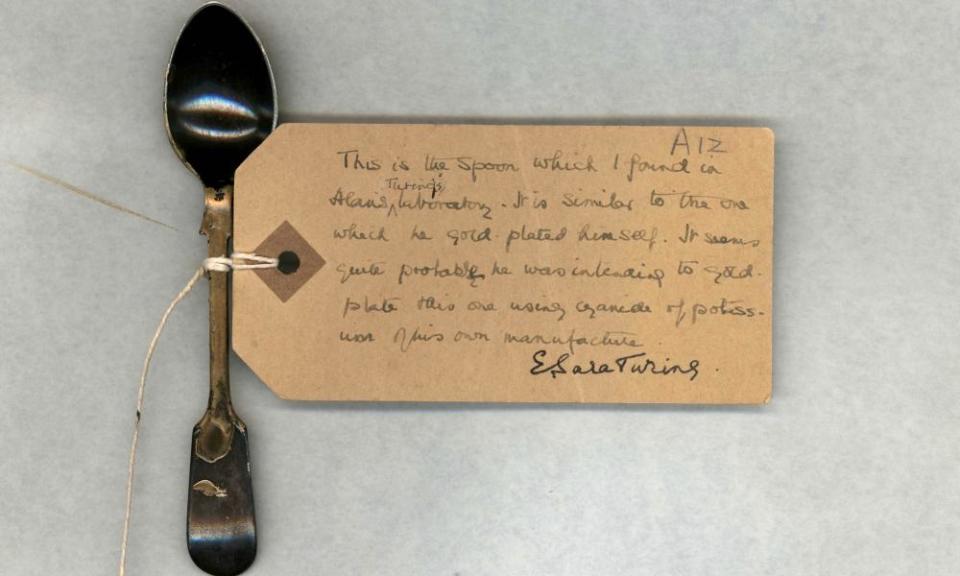 A12
This is the spoon which I found in
Alan's Turing's laboratory. It is similar to the one
which he gold-plated himself. It seems
quite probable he was intending to gold-
plate this one using cyanide of potass-
ium of his own manufacture.
E. Sara Turing.